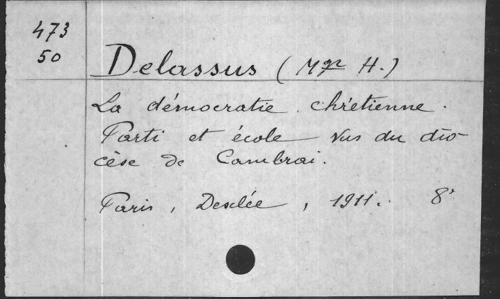 473
50
Delassus (Mgr H.)
La démocratie chrétienne.
Parti et école vus du dio-
cèse de Cambrai.
Paris, Desclée, 1911. 8°